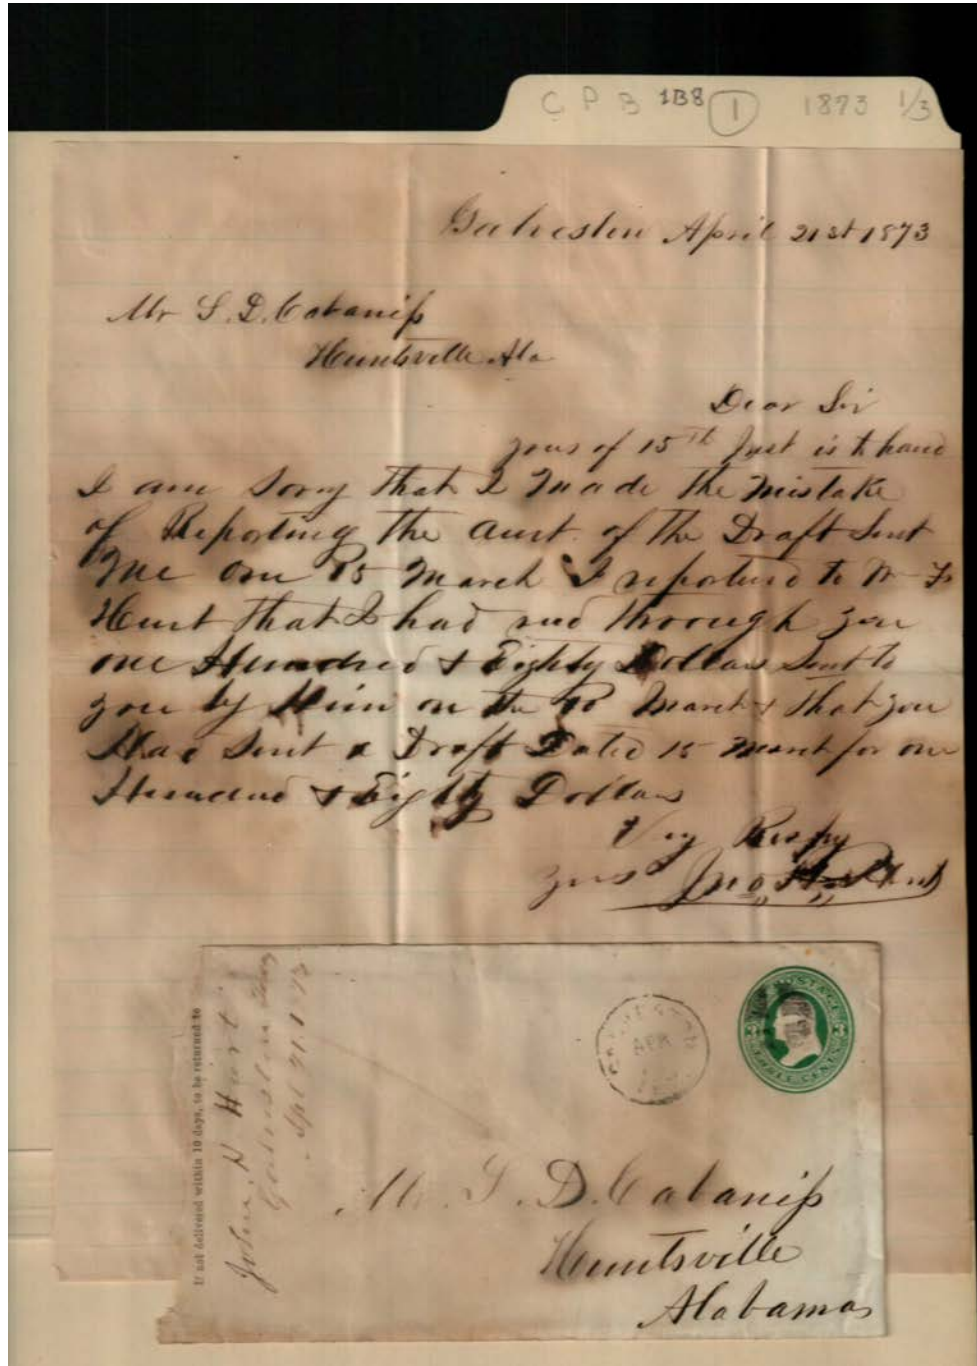 C P B 1B8 1 1873 1/3
Galveston April 21st 1873
Mr S. D. Cabaniss
Huntsville Ala
Dear Sir
yours of 15th Inst is to hand
I am Sorry that I Made the Mistake
of Reporting the Amt. of the Draft Sent
Me on 15 March I reported to
that I had through you
one Hundred & Eighty Dollars Sent to
you by Him on the March & that you
Had Sent a Draft Dated 15 March for one
Hundred & Eighty Dollars
Very Respy
yours Jno
If not delivered within 10 days, to be returned to
John
Galveston
Apl 21. 1873
APR
POSTAGE
THREE CENTS
Mr. S. D. Cabaniss
Huntsville
Alabama